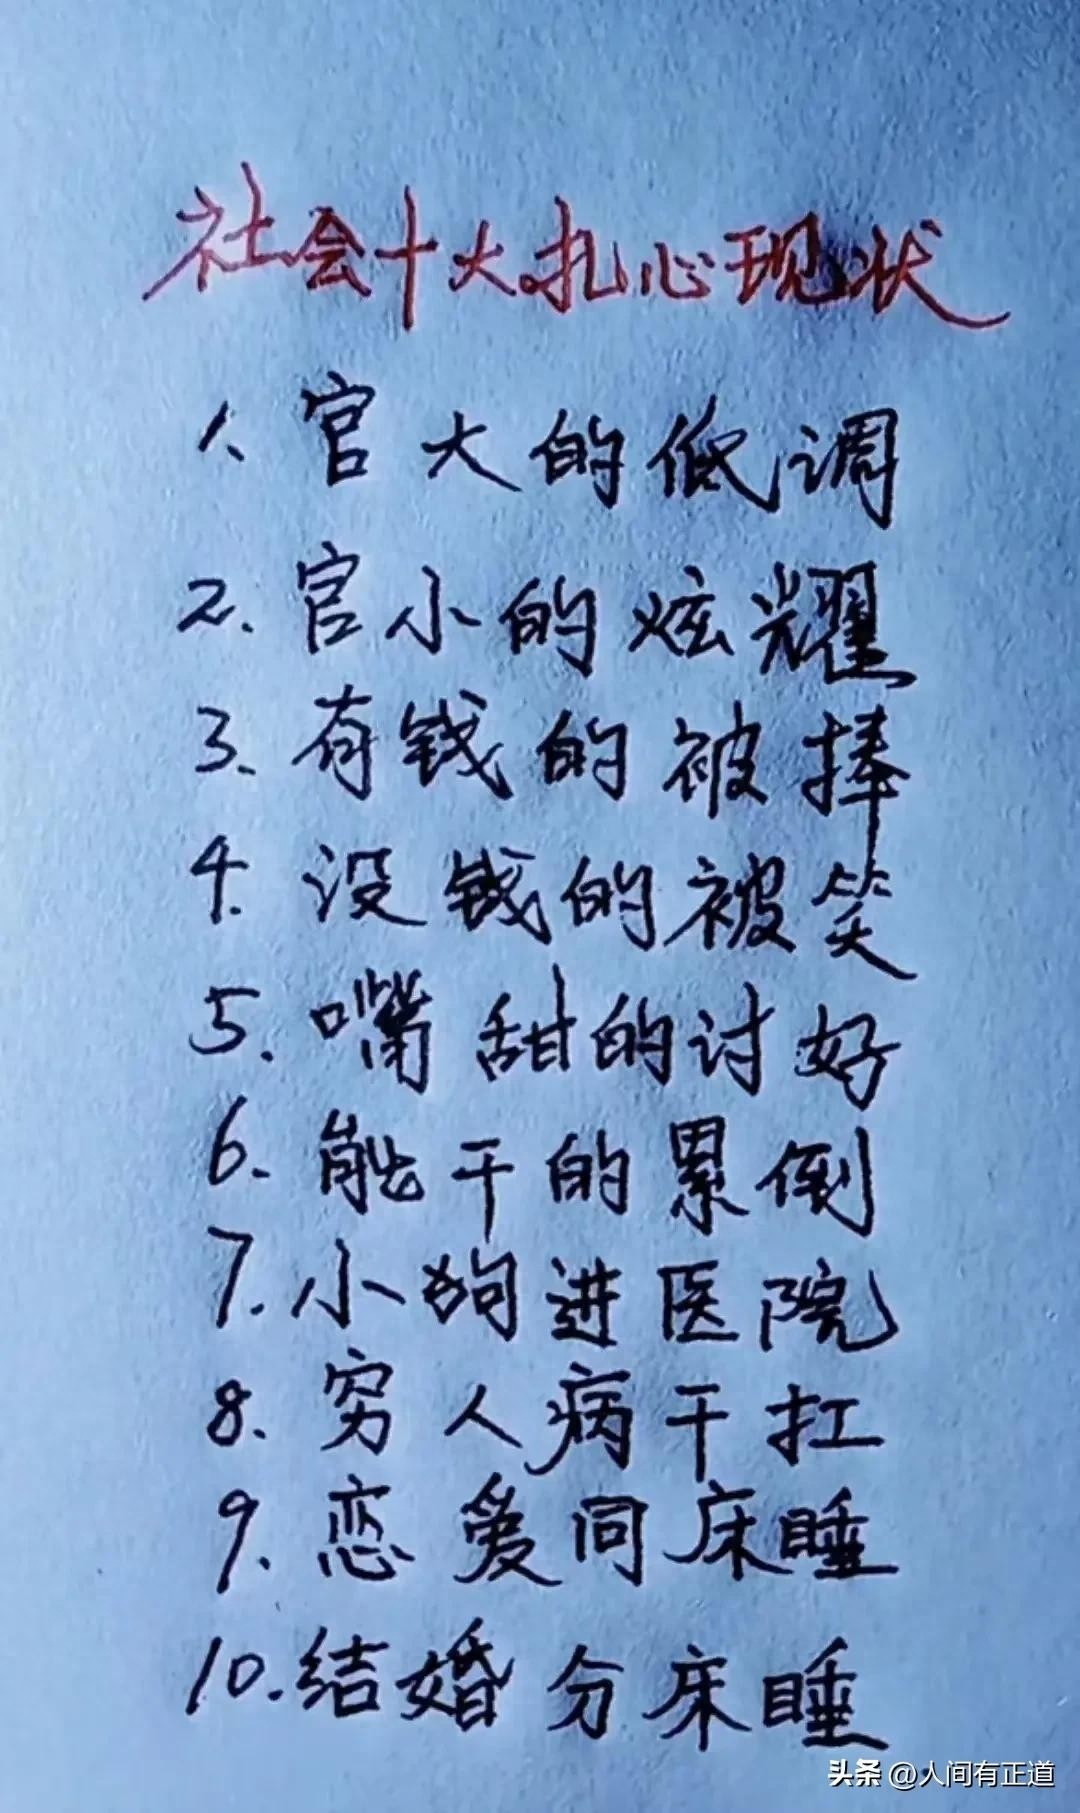 社会十大扎心现状
1、官大的低调
2、官小的炫耀
3、有钱的被捧
4、没钱的被笑
5、嘴甜的讨好
6、能干的累倒
7、小狗进医院
8、穷人病干扛
9、恋爱同床睡
10、结婚分床睡
头条 @人间有正道